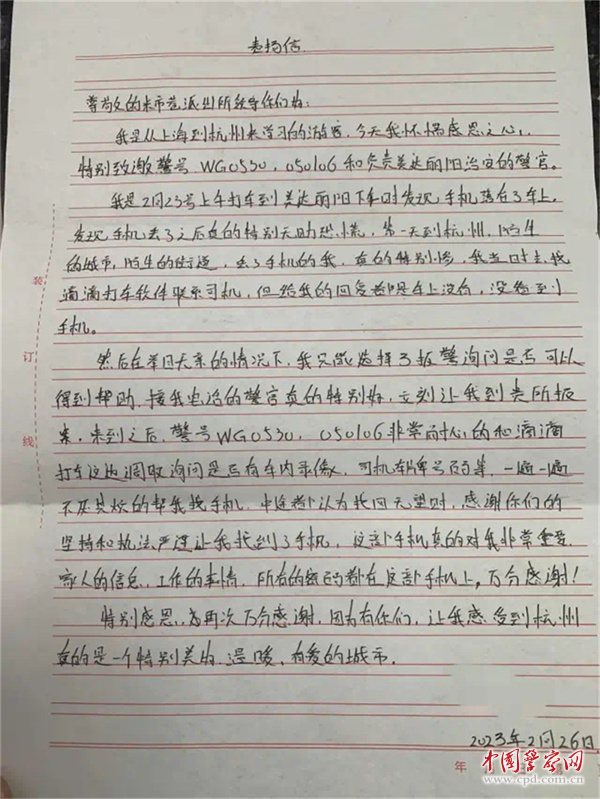 表扬信
尊敬的米市巷派出所领导你们好：
我是从上海到杭州来学习的游客，今天我怀惴感恩之心，
特别致激警号 WG0530，050106和负责美达丽阳治安的警官。
我是2月23号上午打车到美达丽阳下车时发现手机落在了车上。
发现手机丢了之后真的特别无助恐慌，第一天到杭州，陌生
的城市，陌生的街道，丢了手机的我，真的特别惨，我当时去找
滴滴打车软件联系司机，但给我的回复都是车上没有，没看到
手机。
然后在举目无亲的情况下，我只能选择了报警询问是否可以
得到帮助，接我电话的警官真的特别好，立刻让我到贵所报
案，来到之后，警号WG0530，050106非常耐心的和滴滴
打车这边调取询问是否有车内录像，司机车牌号码等，一遍一遍
不厌其烦的帮我找手机，中途都认为找回无望时，感谢你们的
坚持和执法严谨让我找到了手机，这部手机真的对我非常重要
家人的信息，工作的事情，所有的密码都在这部手机上，万分感谢！
特别感恩，再次万分感谢，因为有你们，让我感受到杭州
真的是一个特别美的、温暖、有爱的城市。
2023年2月26日
装
订
线
年
中国警察网
www.cpd.com.cn